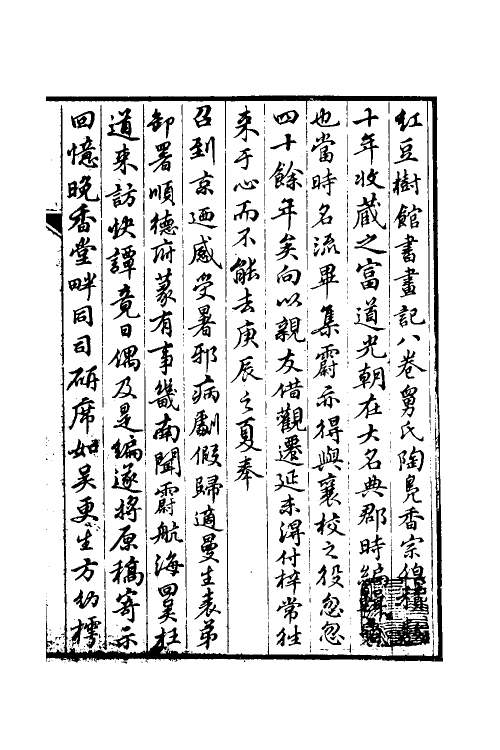 紅豆樹館書畫記八卷舅氏陶鳧香宗伯積數
十年收藏之富道光朝在大名典郡時編
也當時名流畢集霨亦得與襄校之役忽忽
四十餘年矣向以親友借觀遷延未得付梓常往
來于心而不能去庚辰之夏奉
召到京迺感受暑邪病劇假歸適曼生表弟
卸署順德府篆有事畿南聞霨航海回吴枉
道來訪快譚竟日偶及是編遂將原稿寄示
回憶晚香堂畔同司研席如吴更生方幼樗